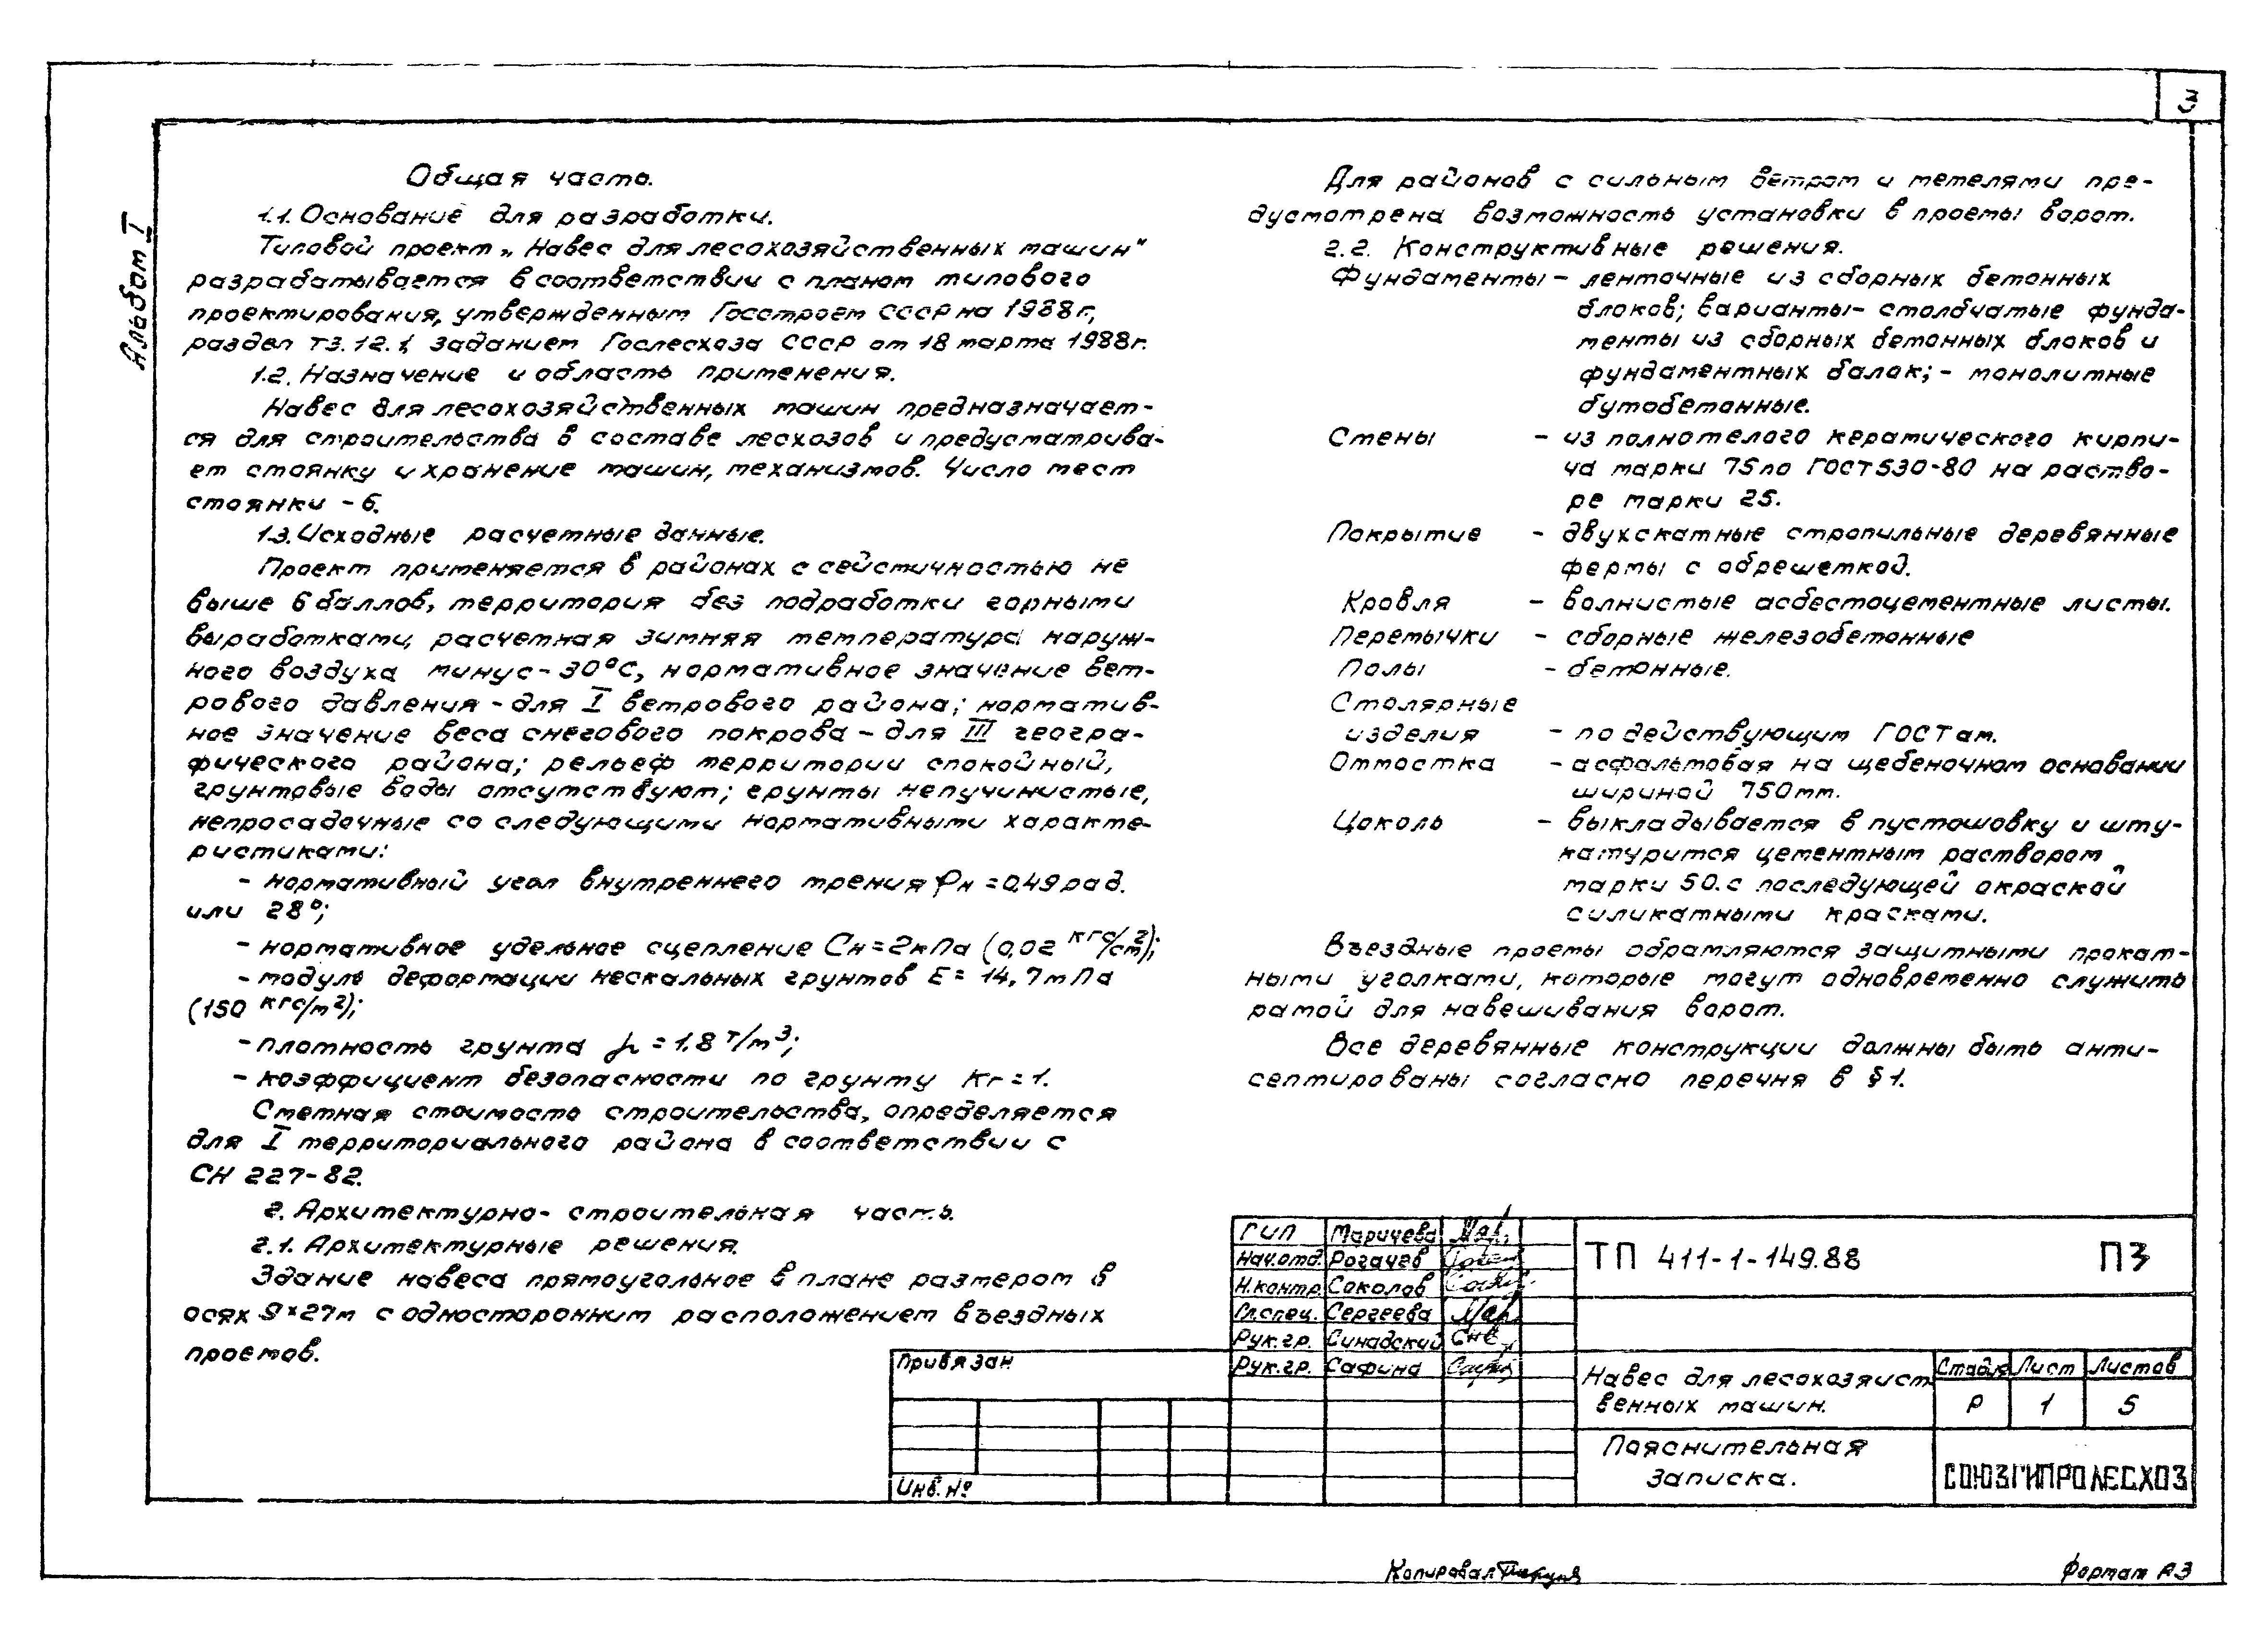 3
Альбом I
Общая часть.
1.1. Основание для разработки.
Типовой проект „Навес для лесохозяйственных машин"
разрабатывается в соответствии с планом типового
проектирования, утвержденным Госстроем СССР на 1988г,
раздел Т3.12.1, заданием Гослесхоза СССР от 18 марта 1988г.
1.2. Назначение и область применения.
Навес для лесохозяйственных машин предназначает-
ся для строительства в составе лесхозов и предусматрива-
ет стоянку и хранение машин, механизмов. Число мест
стоянки - 6.
1.3. Исходные расчетные данные.
Проект применяется в районах с сейсмичностью не
выше 6 баллов, территория без подработки горными
выработками, расчетная зимняя температура наруж-
ного воздуха минус - 30°С, нормативное значение вет-
рового давления - для I ветрового района; норматив-
ное значение веса снегового покрова - для III геогра-
фического района; рельеф территории спокойный,
грунтовые воды отсутствуют; грунты непучинистые,
непросадочные со следующими нормативными характе-
ристиками:
- нормативный угол внутреннего трения φн = 0,49 рад.
или 28°;
- нормативное удельное сцепление Сн = 2кПа (0,02 кгс/см²);
- модуль деформации нескальных грунтов Е = 14,7мПа
(150 кгс/м²);
- плотность грунта γ = 1.8 т/м³;
- коэффициент безопасности по грунту Кг = 1.
Сметная стоимость строительства, определяется
для I территориального района в соответствии с
СН 227-82.
2. Архитектурно- строительная часть.
2.1. Архитектурные решения.
Здание навеса прямоугольное в плане размером в
осях 9×27м с односторонним расположением въездных
проемов.
Для районов с сильным ветром и метелями пре-
дусмотрена возможность установки в проемы ворот.
2.2. Конструктивные решения.
Фундаменты - ленточные из сборных бетонных
блоков; варианты- столбчатые фунда-
менты из сборных бетонных блоков и
фундаментных балок; - монолитные
бутобетонные.
Стены - из полнотелого керамического кирпи-
ча марки 75 по ГОСТ 530-80 на раство-
ре марки 25.
Покрытие - двухскатные стропильные деревянные
фермы с обрешеткой.
Кровля - волнистые асбестоцементные листы.
Перемычки - сборные железобетонные
Полы - бетонные.
Столярные
изделия - по действующим ГОСТам.
Отмостка - асфальтовая на щебеночном основании
шириной 750мм.
Цоколь - выкладывается в пустошовку и шту-
катурится цементным раствором
марки 50. с последующей окраской
силикатными красками.
Въездные проемы обрамляются защитными прокат-
ными уголками, которые могут одновременно служить
рамой для навешивания ворот.
Все деревянные конструкции должны быть анти-
септированы согласно перечня в § 1.
ГИП Маричева
Нач.отд. Рогачев
Н.контр Соколов
Гл.спец. Сергеева
Рук.гр. Синадский
Рук.гр. Сафина
ТП 411-1-149.88 ПЗ
Привязан
Инв. №
Навес для лесохозяйст
венных машин.
Стадия Лист Листов
Р 1 5
Пояснительная
записка.
СОЮЗГИПРОЛЕСХОЗ
Копировал
Формат А3